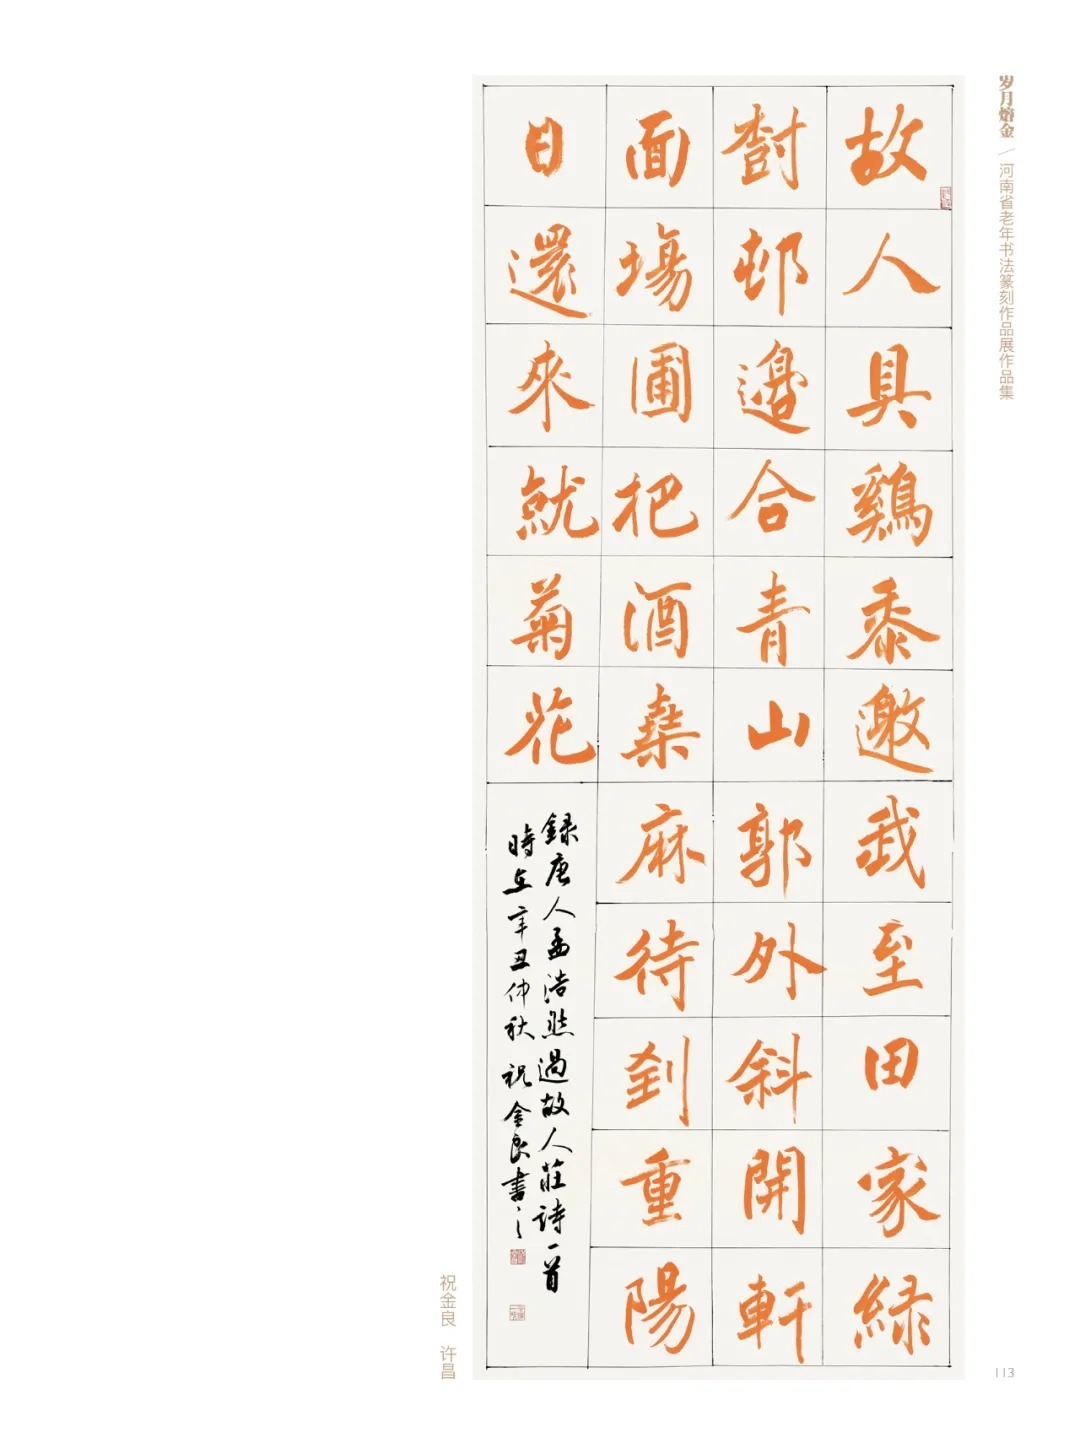 岁月熔金／河南省老年书法篆刻作品展作品集
故人具鷄黍邀我至田家緑
樹邨邊合青山郭外斜開軒
面場圃把酒桒麻待到重陽
日還來就菊花
録唐人孟浩然過故人莊詩一首
時在辛丑仲秋 祝金良書之
祝金良 许昌
113